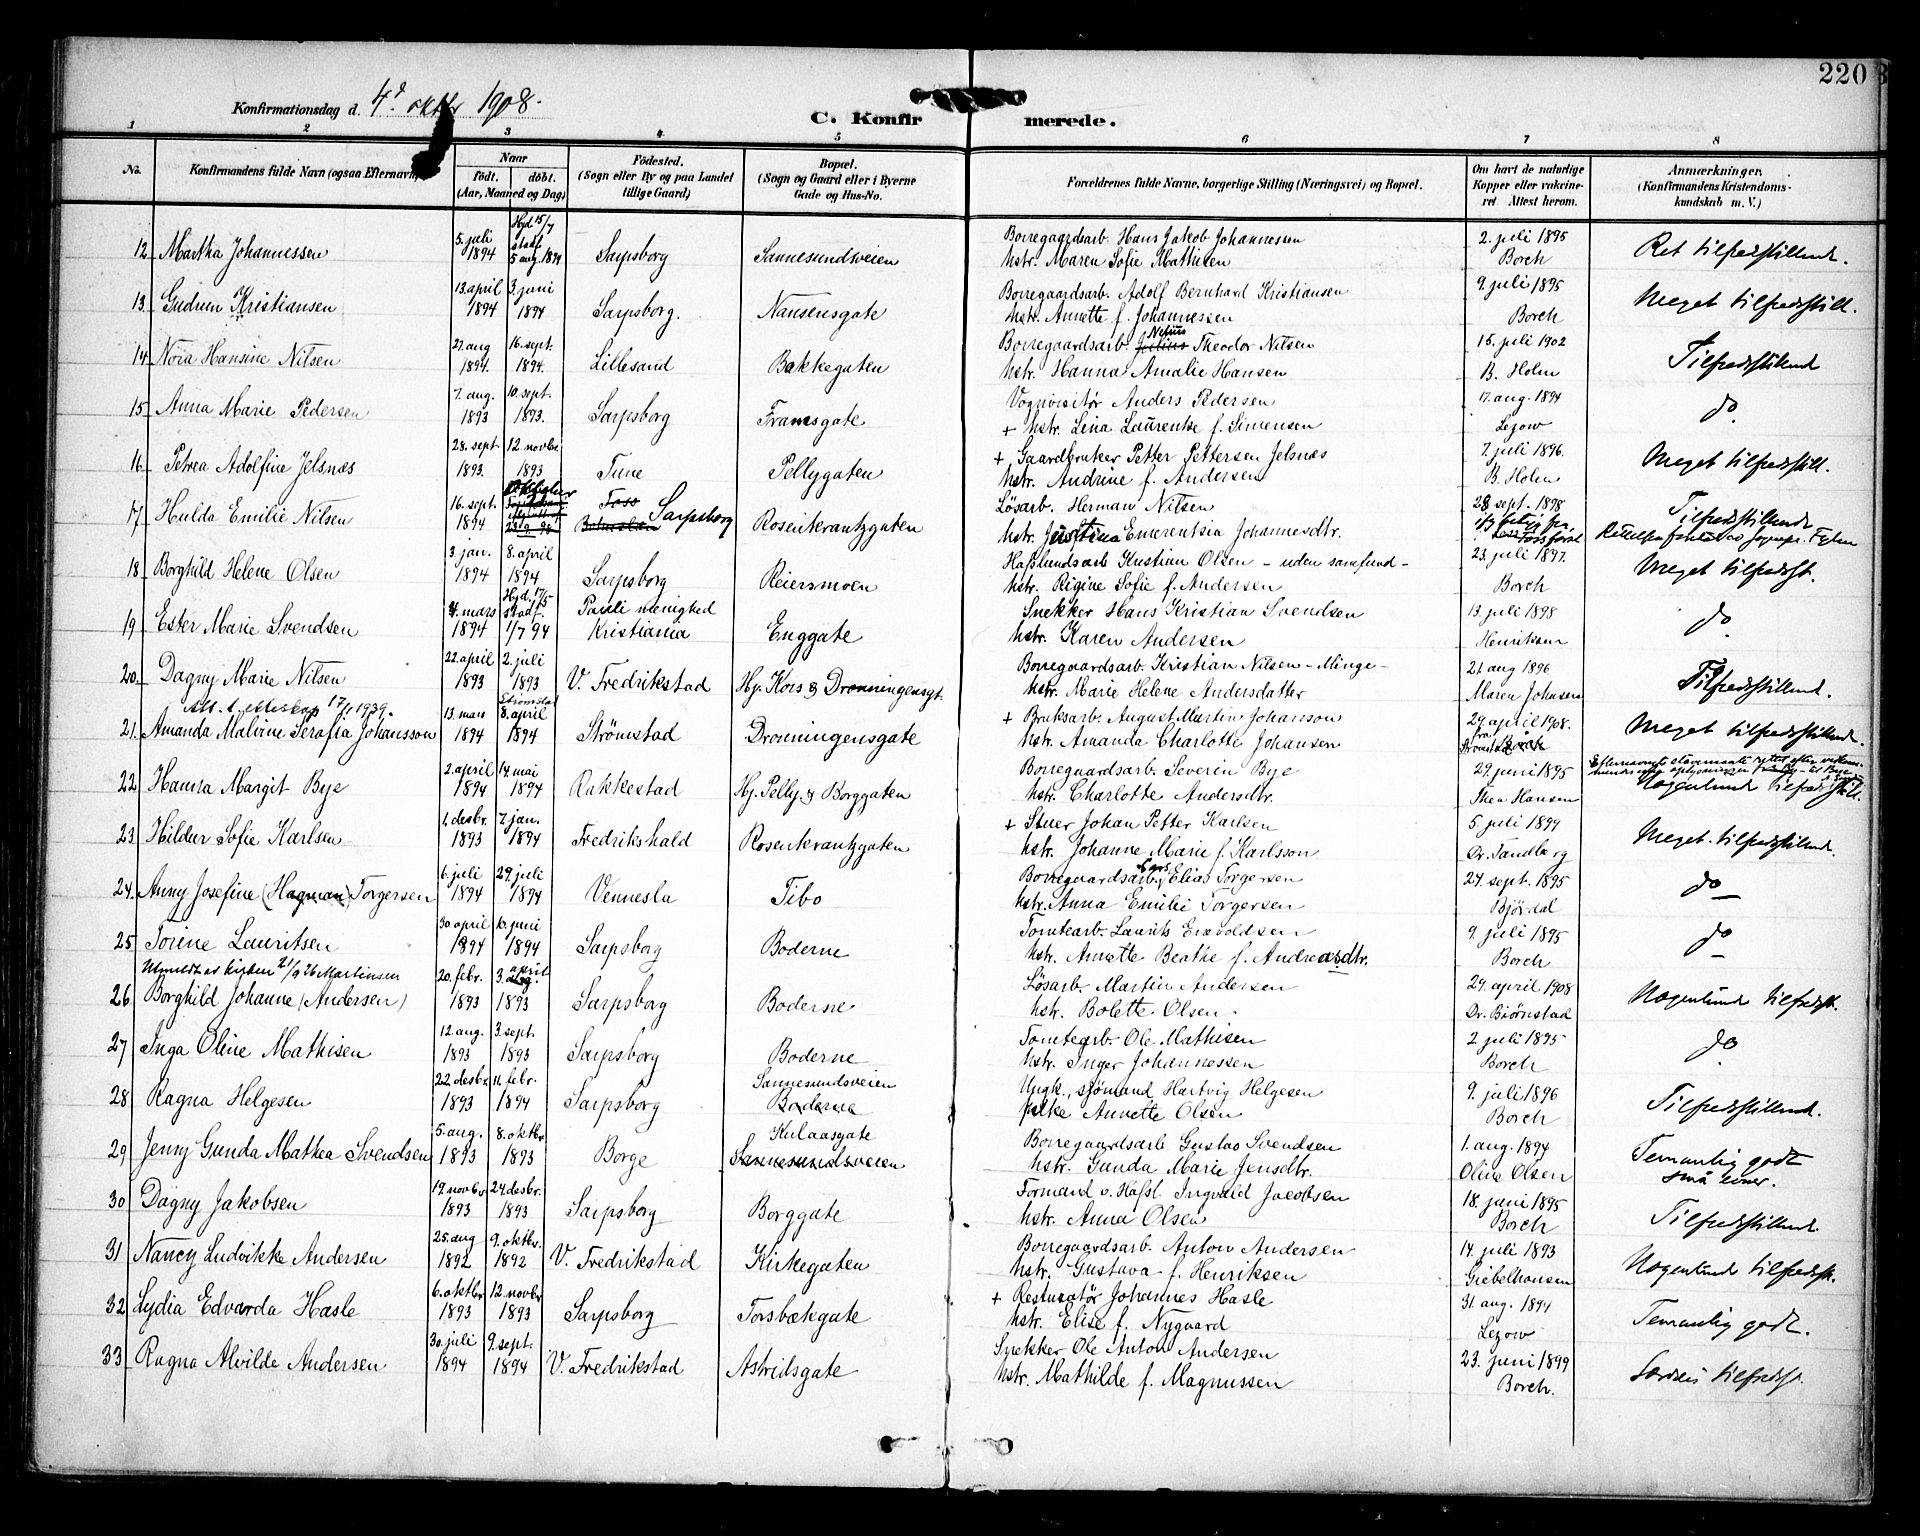 220
Konfirmationsdag d. 4d oktbr 1908.
C. Konfirmerede.
1 2 3 4 5 6 7 8
No. Konfirmandens fulde Navn (ogsaa Efternavn) Naar födt. döbt. (Aar, Maaned og Dag) Födested. (Sogn eller By og paa Landet tillige Gaard) Bopæl. (Sogn og Gaard eller i Byerne Gade og Hus-No. Forældrenes fulde Navne, borgerlige Stilling (Næringsvei) og Bopæl. Om havt de naturlige Kopper eller vakcineret Attest herom. Anmærkninger. (Konfirmandens Kristendomskundskab m. V.)
12 Martha Johannessen 5. juli 1894 Hjd. 15/7 stadf. 5 aug. 1894 Sarpsborg Sannesundsveien Borregaardsarb. Hans Jakob Johannessen hstr. Maren Sofie Mathisen 2. juli 1895 Borch Ret tilfredsstillend.
13. Gudrun Kristiansen 13. april 1894 3. juni 1894 Sarpsborg. Nansensgate Borregaardsarb. Adolf Bernhard Kristiansen hstr. Annette f. Johannessen 9. juli 1895 Borch Meget tilfredsstill.
14 Nora Hansine Nilsen 27. aug 1894. 16. sept. 1894. Lillesand Bakkegaten Borregaardsarb. Julius Nelius Theodor Nilsen hstr. Hanna Amalie Hansen 15. juli 1902 B. Holen Tilfredsstillend
15 Anna Marie Pedersen 7. aug. 1893 10. sept. 1893. Sarpsborg Framsgate Vognvisitør Anders Pedersen + hstr. Lina Laurentse f. Simensen 17. aug. 1894 Lezow do.
16 Petrea Adolfine Jelsnæs 28. sept 1893. 12. novbr. 1893 Tune Pellygaten + Gaardbruker Petter Pettersen Jelsnæs hstr. Andrine f. Andersen 7. juli 1896. B. Holen Meget tilfredsstill.
17. Hulda Emilie Nilsen 16. sept. 1894 23/9 98 Foss Sarpsborg Rosenkrantzgaten Løsarb. Herman Nilsen hstr. Justina Emerentsia Johannesdtr. 28 sept. 1898 Tilfredsstillend
18 Borghild Helene Olsen 3. jan. 1894 8. april 1894 Sarpsborg Reiersmoen Hafslundsarb Kristian Olsen - uden samfund - hstr. Rigine Sofie f. Andersen 23. juli 1897. Borch Meget tilfredsst.
19 Ester Marie Svendsen 4. mars 1894 Hjd. 17/5 stadf. 1/7 94 Pauli menighed Kristiania Enggate Snekker Hans Kristian Svendsen hstr. Karen Andersen 13. juli 1898 Henriksen do.
20. Dagny Marie Nilsen 22. april 1893 2. juli 1893 V. Fredrikstad Hj. Kors & Dronningensgt. Borregaardsarb. Kristian Nilsen - Minge - hstr. Marie Helene Andersdatter 21. aug 1896 Maren Johnsen Tilfredsstillend.
17/1 1939.
21. Amanda Malvine Serafia Johansson 13. mars 1894 Strömstad 8. april 1894 Strømstad Dronningensgate + Bruksarb. August Martin Johanson hstr. Amanda Charlotte Johansen 29. april 1908. fra Strømstad Borch Meget tilfredsstillend.
22 Hanna Margit Bye 2. april 1894 14. mai 1894 Rakkestad Hj. Pelly. & Borggaten Borregaardsarb. Severin Bye hstr. Charlotte Andersdtr. 29. juni 1895 Thea Hansen Nogenlund tilfredsstill.
23 Hildur Sofie Karlsen 1. desbr. 1893 7. jan. 1894 Fredrikshald Rosenkrantzgaten + Stuer Johan Petter Karlsen hstr. Johanne Marie f. Karlsson 5. juli 1899 Dr. Sandberg Meget tilfredsstillend.
24. Anny Josefine (Hagman) Torgersen 6. juli 1894 29. juli 1894 Vennesla Tibo Borregaardsarb. Lars Elias Torgersen hstr. Anna Emilie Torgersen 24. sept. 1895 Bjørdal do
25 Torine Lauritsen 30. april 1894 10. juni 1894 Sarpsborg Boderne Tomtearb. Laurits Enevoldsen hstr. Annette Beathe f. Andreasdtr. 9. juli 1895 Borch do
Utmeldt av kirken 21/9 26 Martinsen
26 Borghild Johanne (Andersen) 20. febr. 1893 3. april 1893 Sarpsborg Boderne Løsarb. Martin Andersen hstr. Bolette Olsen 29. april 1908 Dr. Bjørnstad Nogenlund tilfredsst.
27 Inga Oline Mathisen 12. aug. 1893 3. sept. 1893 Sarpsborg Boderne Tomtearb. Ole Mathisen hstr. Inger Johannessen 2 juli 1895 Borch do.
28 Ragna Helgesen 22. desbr. 1893 11. febr. 1894 Sarpsborg Sannesundsveien Boderne Ungk., sjömand Hartvig Helgesen pike Annette Olsen 9. juli 1896 Borch Tilfredsstillend.
29 Jenny Gunda Mathea Svendsen 5. aug. 1893 8. oktbr 1893 Borge Kulaasgate Sannesundsveien Borregaardsarb Gustav Svendsen hstr. Gunda Marie Jensdtr. 1. aug. 1894 Oline Olsen Temmelig godt små evner.
30 Dagny Jakobsen 19. novbr 1893 24. desbr. 1893 Sarpsborg Borggate Formand v. Hafsl. Ingvald Jacobsen hstr. Anna Olsen 18. juni 1895 Borch Tilfredsstillend.
31 Nancy Ludvikke Andersen 25. aug 1892 9. oktbr. 1892 V. Fredrikstad Kirkegaten Borregaardsarb. Anton Andersen hstr. Gustava f. Henriksen 14. juli 1893 Giebelhausen Nogenlund tilfredsst.
32 Lydia Edvarda Hasle 6. oktbr 1893 12. novbr 1893 Sarpsborg Torsbækgate + Resturatør Johannes Hasle hstr. Elise f. Nygaard 31. aug. 1894 Lezow Temmelig godt.
33 Ragna Alvilde Andersen 30. juli 1894 9. sept. 1894 V. Fredrikstad Astridsgate Snekker Ole Anton Andersen hstr. Mathilde f. Magnussen 23. juni 1899 Borch. Særdeles tilfredsst.